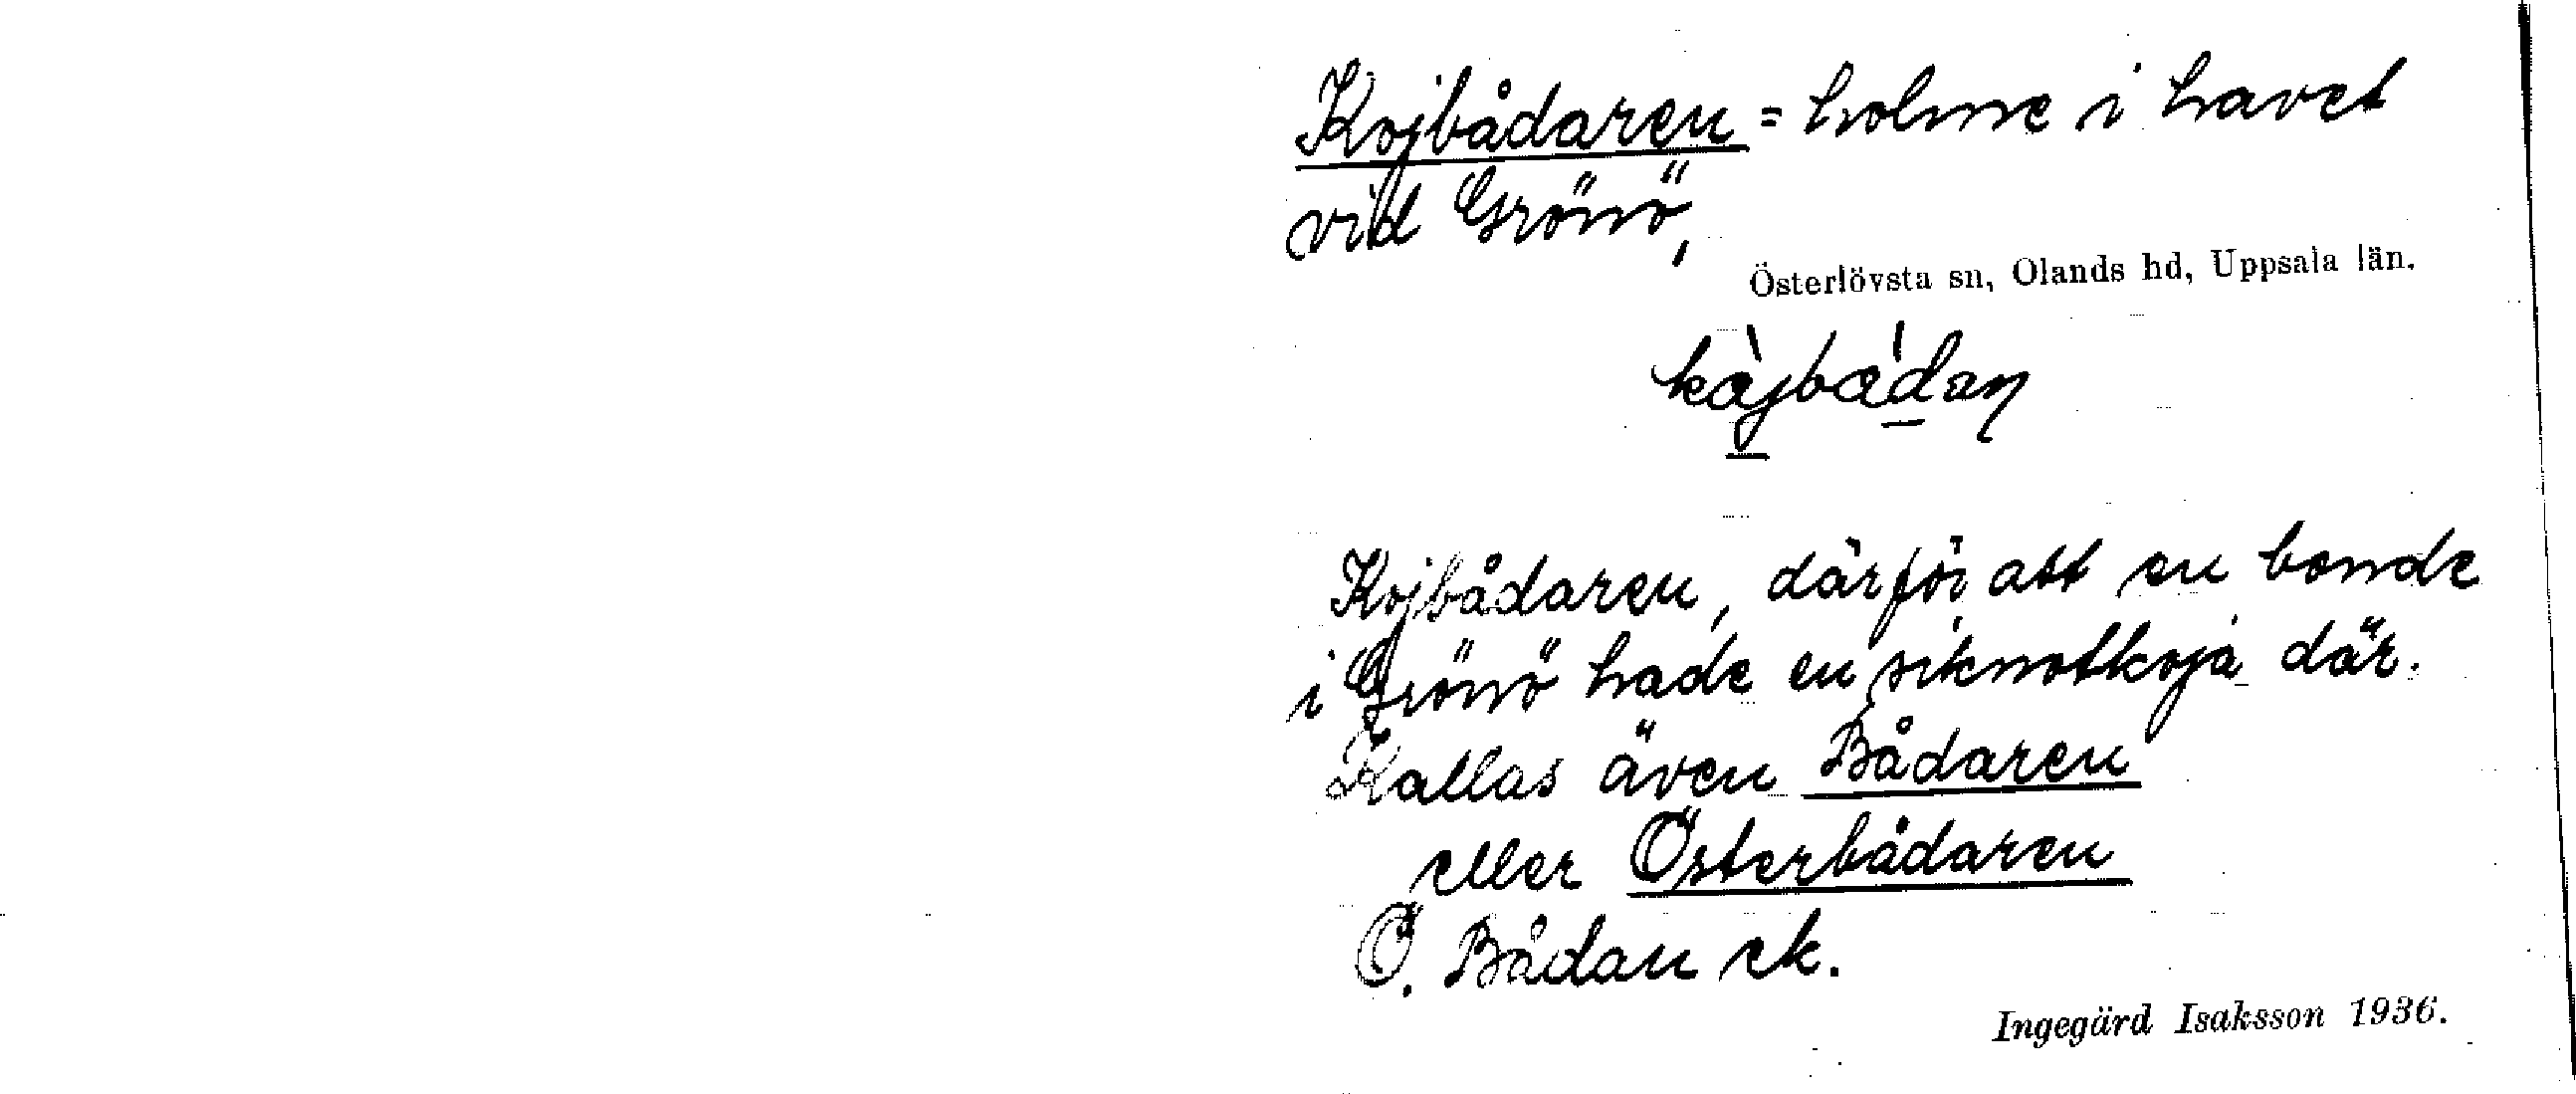 Kojbådaren = holme i havet
vid Grönö,
Österlövsta sn, Olands hd, Uppsala län.
kàjbàdan
Kojbådaren, därför att en bonde
i Grönö hade en siknotkoja där.
Kallas även Bådaren
eller Österbådaren
Ö. Bådan ek.
Ingegärd Isaksson 1936.